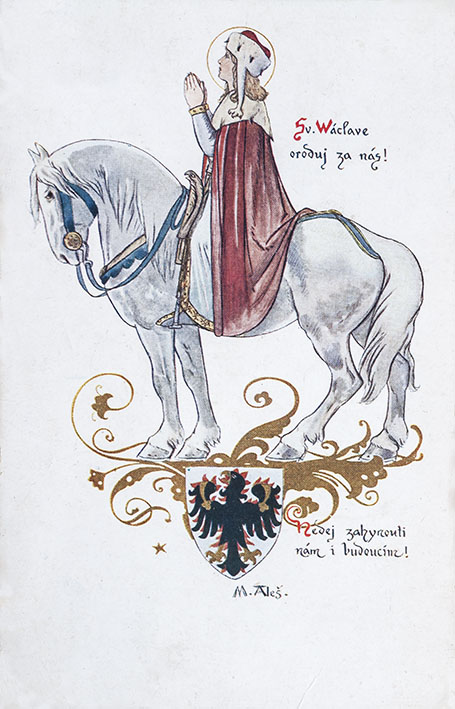 Sv. Wáclave
oroduj za nás!
Nedej zahynouti
nám i budoucím!
M. Aleš.